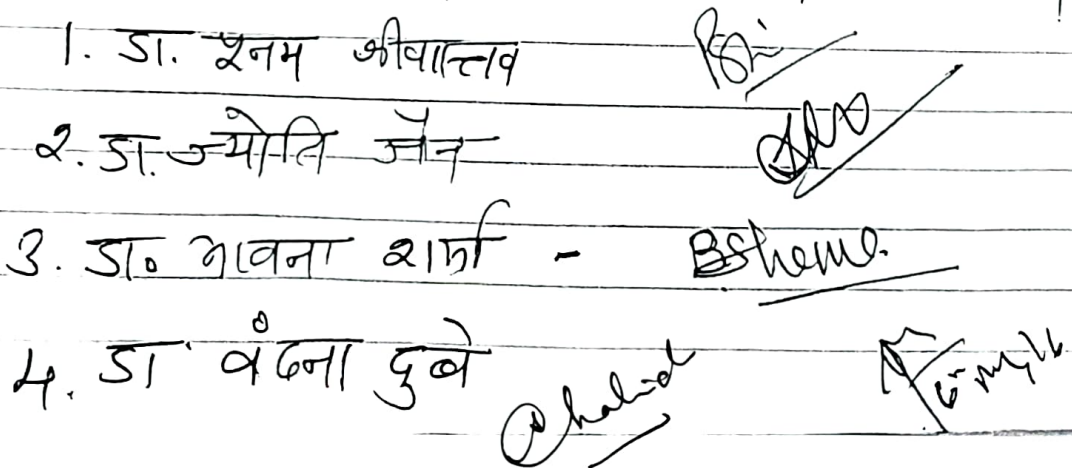 1. डा. पूनम श्रीवास्तव
2. डा. ज्योति जैन
3. डा० भावना शर्मा - BSheme.
4. डा. वंदना दुबे